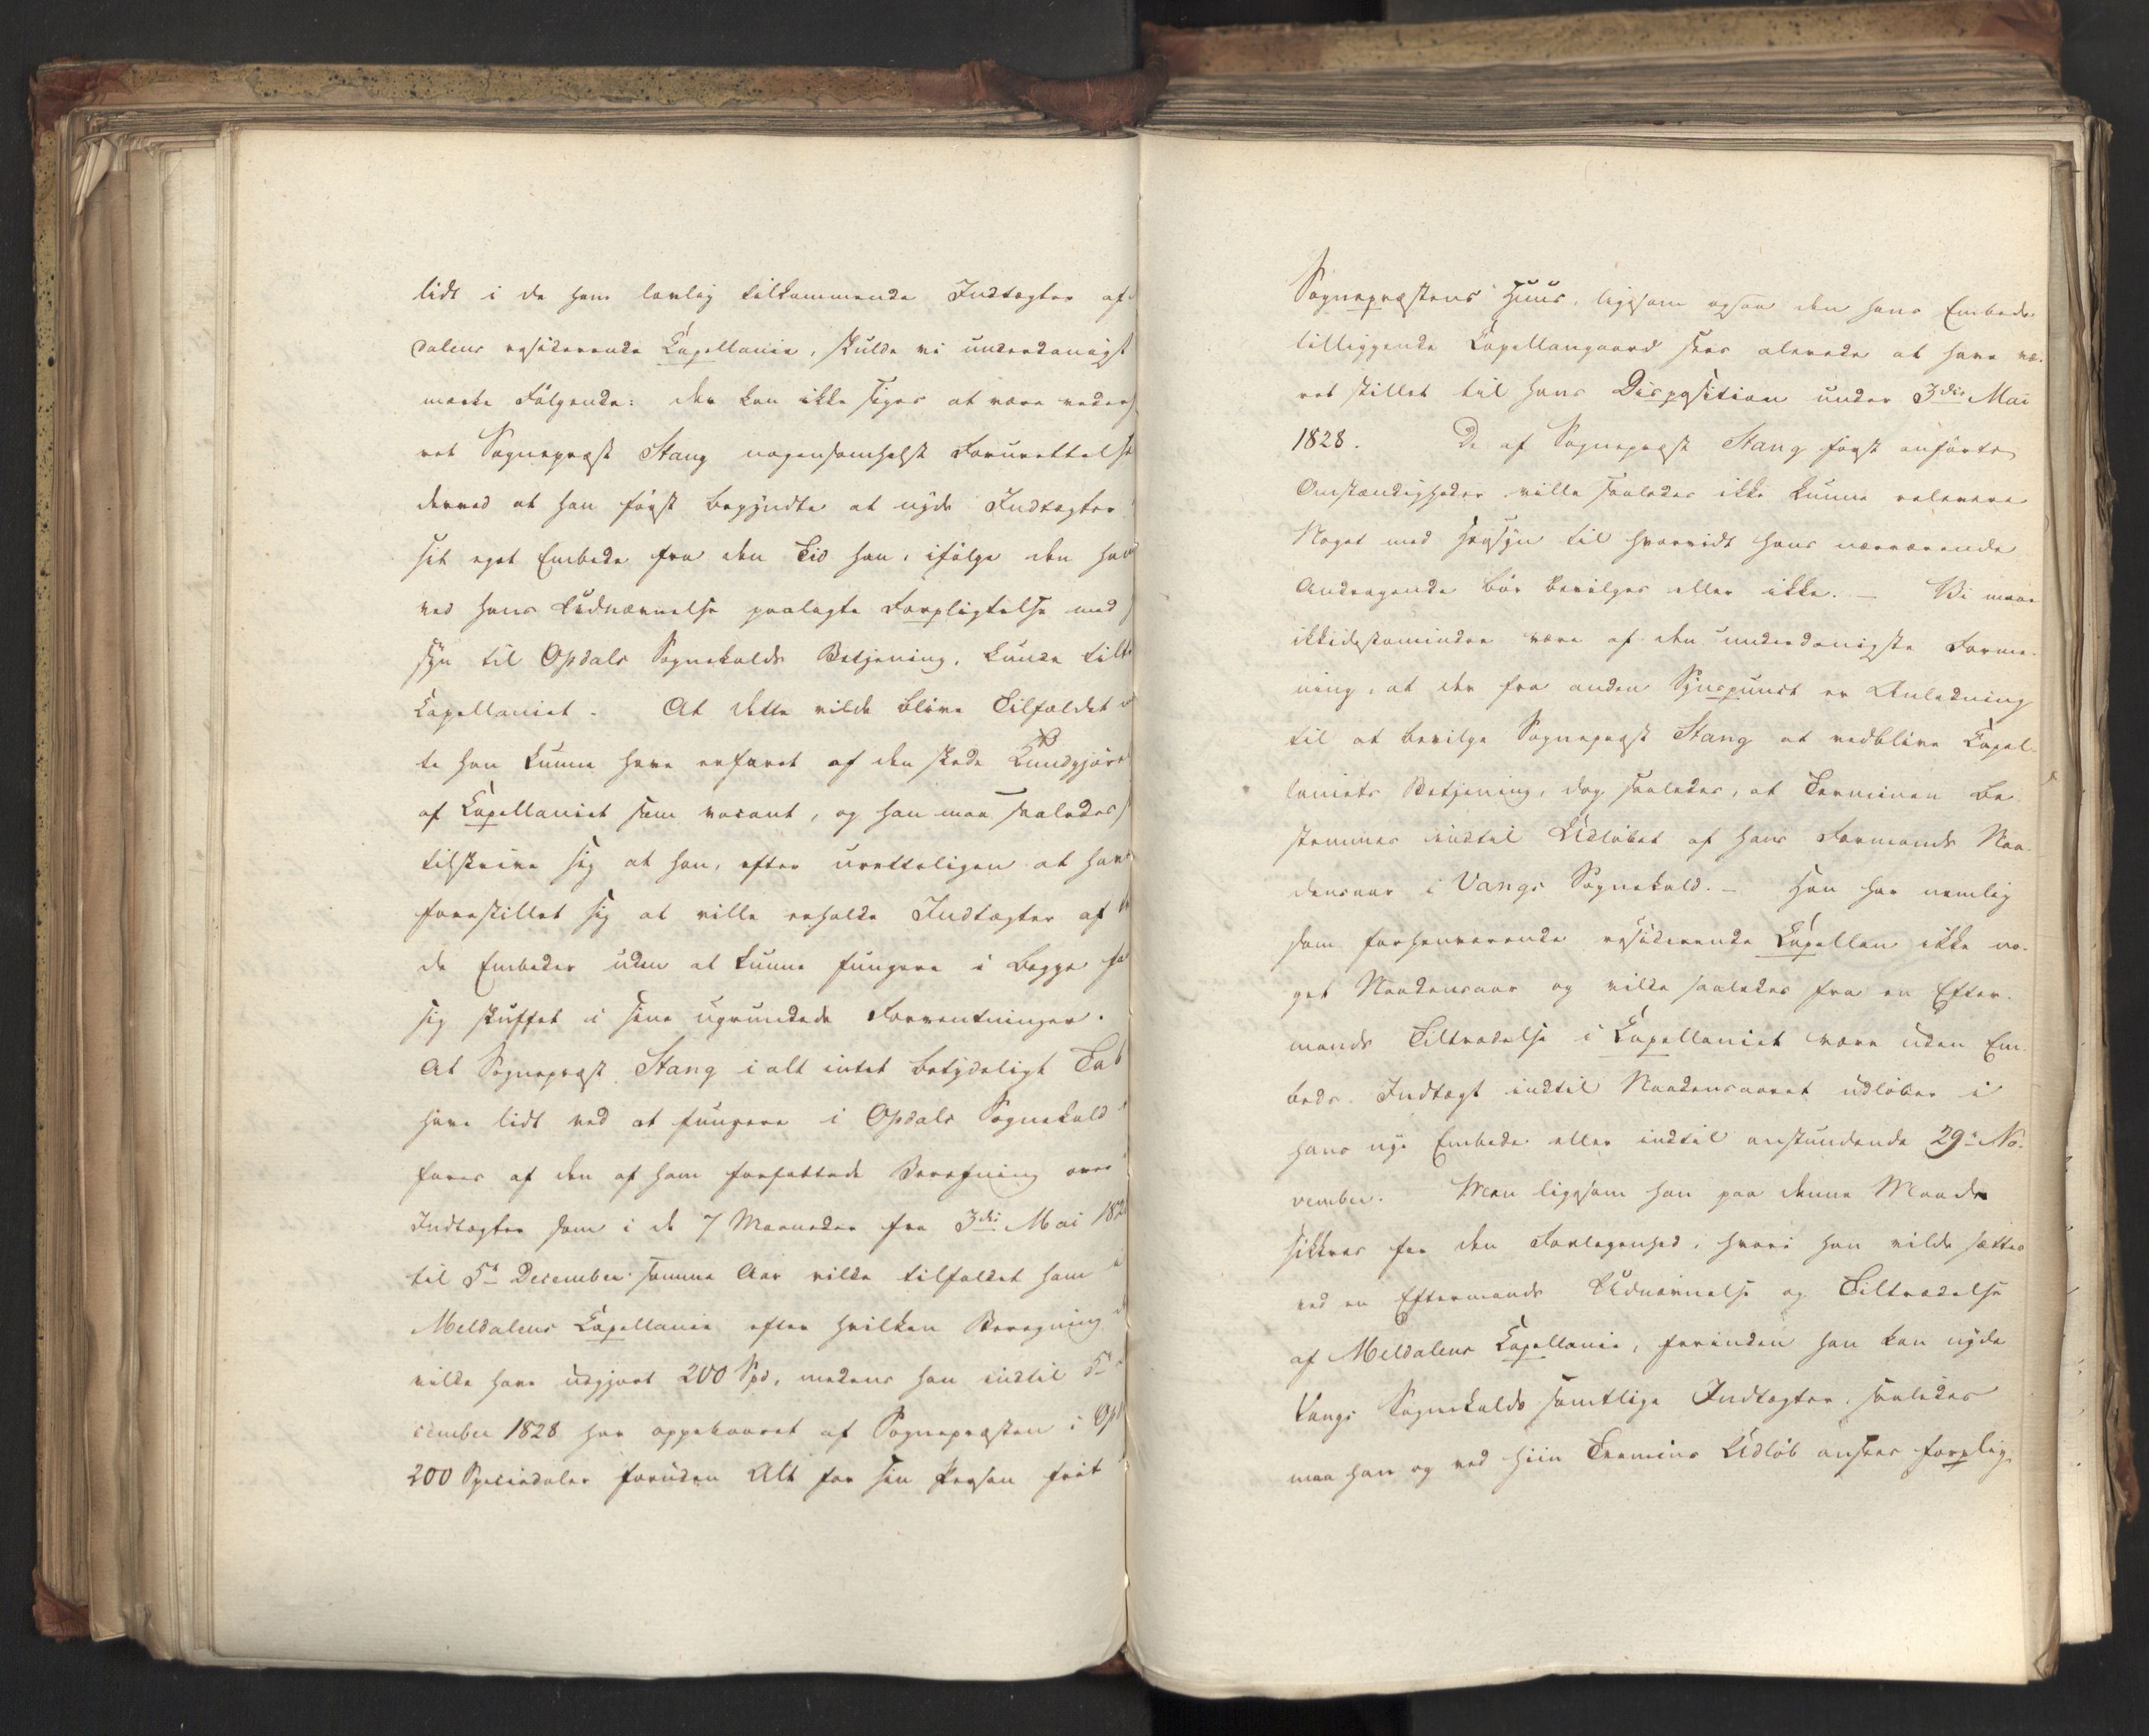 lidt i de ham lovlig tilkommende Indtægter af
dalens residerende Capellanie, skulde vi underdanigst
mærke Følgende: der kan ikke siges at være veder
ret Sognepræst Stang nogensomhelst Forurettelse
derved at han først begyndte at nyde Indtægter
sit eget Embede fra den Tid han, ifølge den ham
ved hans Udnævnelse paalagte Forpligtelse med
syn til Opdals Sognekalds Betjening, kunde tilt
Capellaniet. At dette vilde blive Tilfældet
te han kunne have erfaret af den skede Kundgjør
af Capellaniet som vacant, og han maa saaledes
tilskrive sig at han, efter urettelig at have
forestillet sig at ville erholde Indtægter af
de Embeder uden at kunne fungere i begge
sig skuffet i sine ugrundede Forventninger.
At Sognepræst Stang i alt intet betydeligt Tab
have lidt ved at fungere i Opdals Sognekald
fares af den af ham forfattede Beregning over
Indtægter som i de 7 Maaneder fra 3die Mai 182
til 5te December samme Aar vilde tilfaldet ham
Meldalens Capellanie efter hvilken Beregning
vilde have udgjort 200 Spd, medens han indtil 5te
cember 1828 har oppebaaret af Sognepræsten i Opd
200 Speciedaler foruden Alt for sin Person frit
Sognepræstens Huus, ligesom ogsaa den hans Embede
tilliggende Capellangaard sees allerede at have væ-
ret stillet til hans Disposition under 3die Mai
1828. De af Sognepræst Stang først anførte
Omstændigheder ville saaledes ikke kunne relevere
Noget med Hensyn til hvorvidt hans nærværende
Andragende bør bevilges eller ikke. – Vi maae
ikkedestomindre være af den underdanigste Forme-
ning, at der fra anden Synspunct er Anledning
til at bevilge Sognepræst Stang at vedblive Capel-
laniets Betjening, dog saaledes, at Terminen be-
stemmes indtil Udløbet af hans Formands Naa-
densaar i Vangs Sognekald. – Han har nemlig
som forhenværende residerende Capellan ikke no-
get Naadensaar og vilde saaledes fra en Efter-
mands Tiltrædelse i Capellaniet være uden Em-
beds Indtægt indtil Naadensaaret udløber i
hans nye Embede eller indtil anstundende 29de No-
vember. Men ligesom han paa denne Maade
sikkres for den Forlegenhed, hvori han vilde sættes
ved en Eftermands Udnævnelse og Tiltrædelse
af Meldalens Capellanie, forinden han kan nyde
Vangs Sognekalds samtlige Indtægter, saaledes
maa han og ved hiin Termins Udløb ansees forplig-